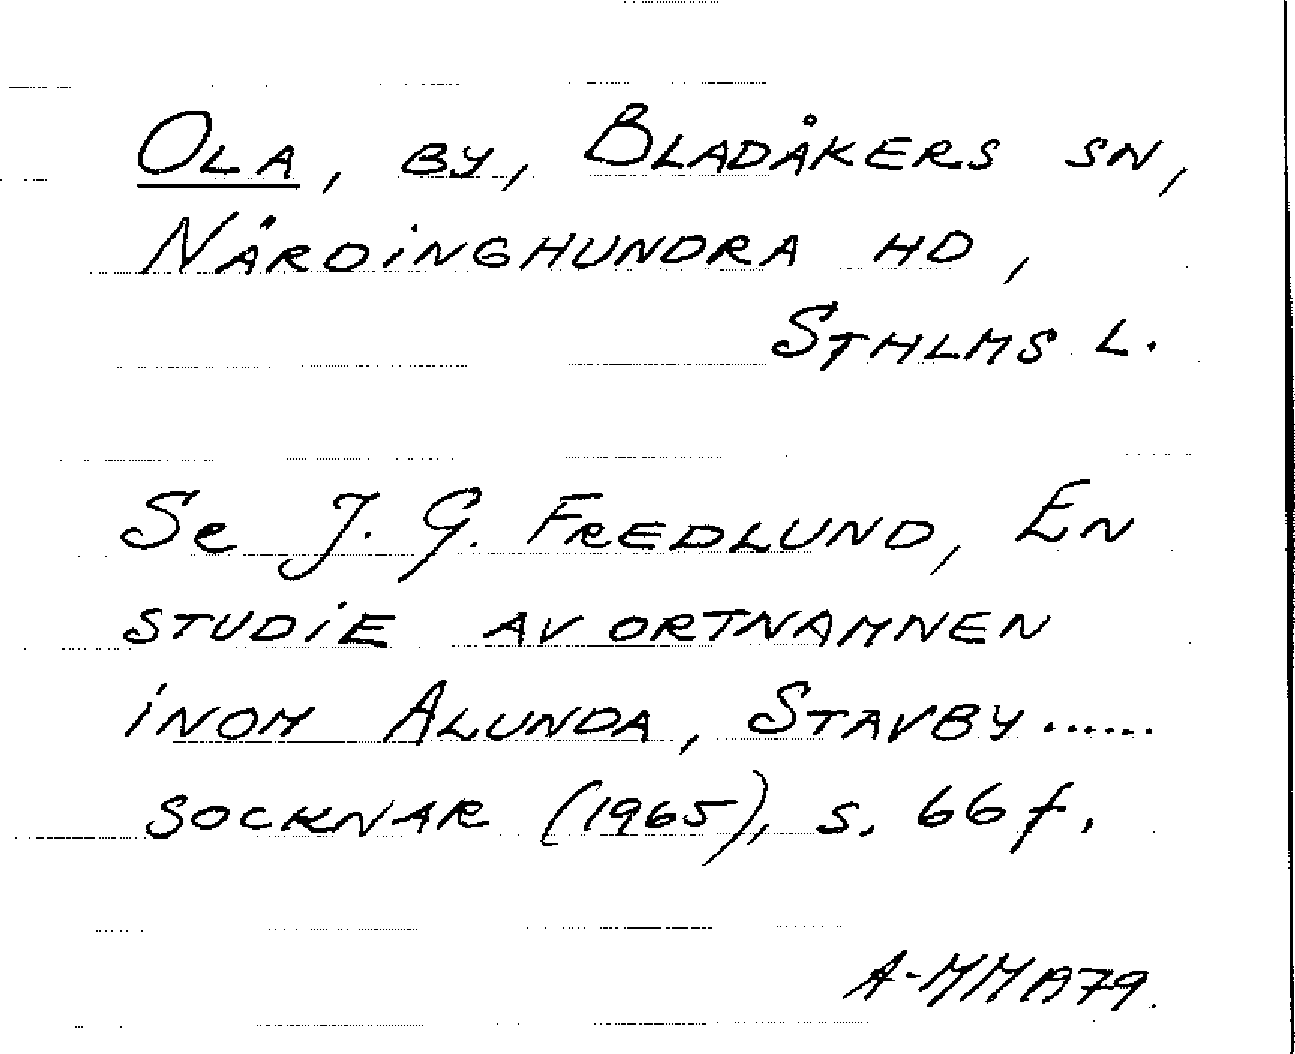 OLA, BY, BLADÅKERS SN,
NÄRDINGHUNDRA HD,
STHLMS L.
Se J. G. FREDLUND, EN
STUDIE AV ORTNAMNEN
INOM ALUNDA, STAVBY......
SOCKNAR (1965), S. 66 f.
A-MMA79.